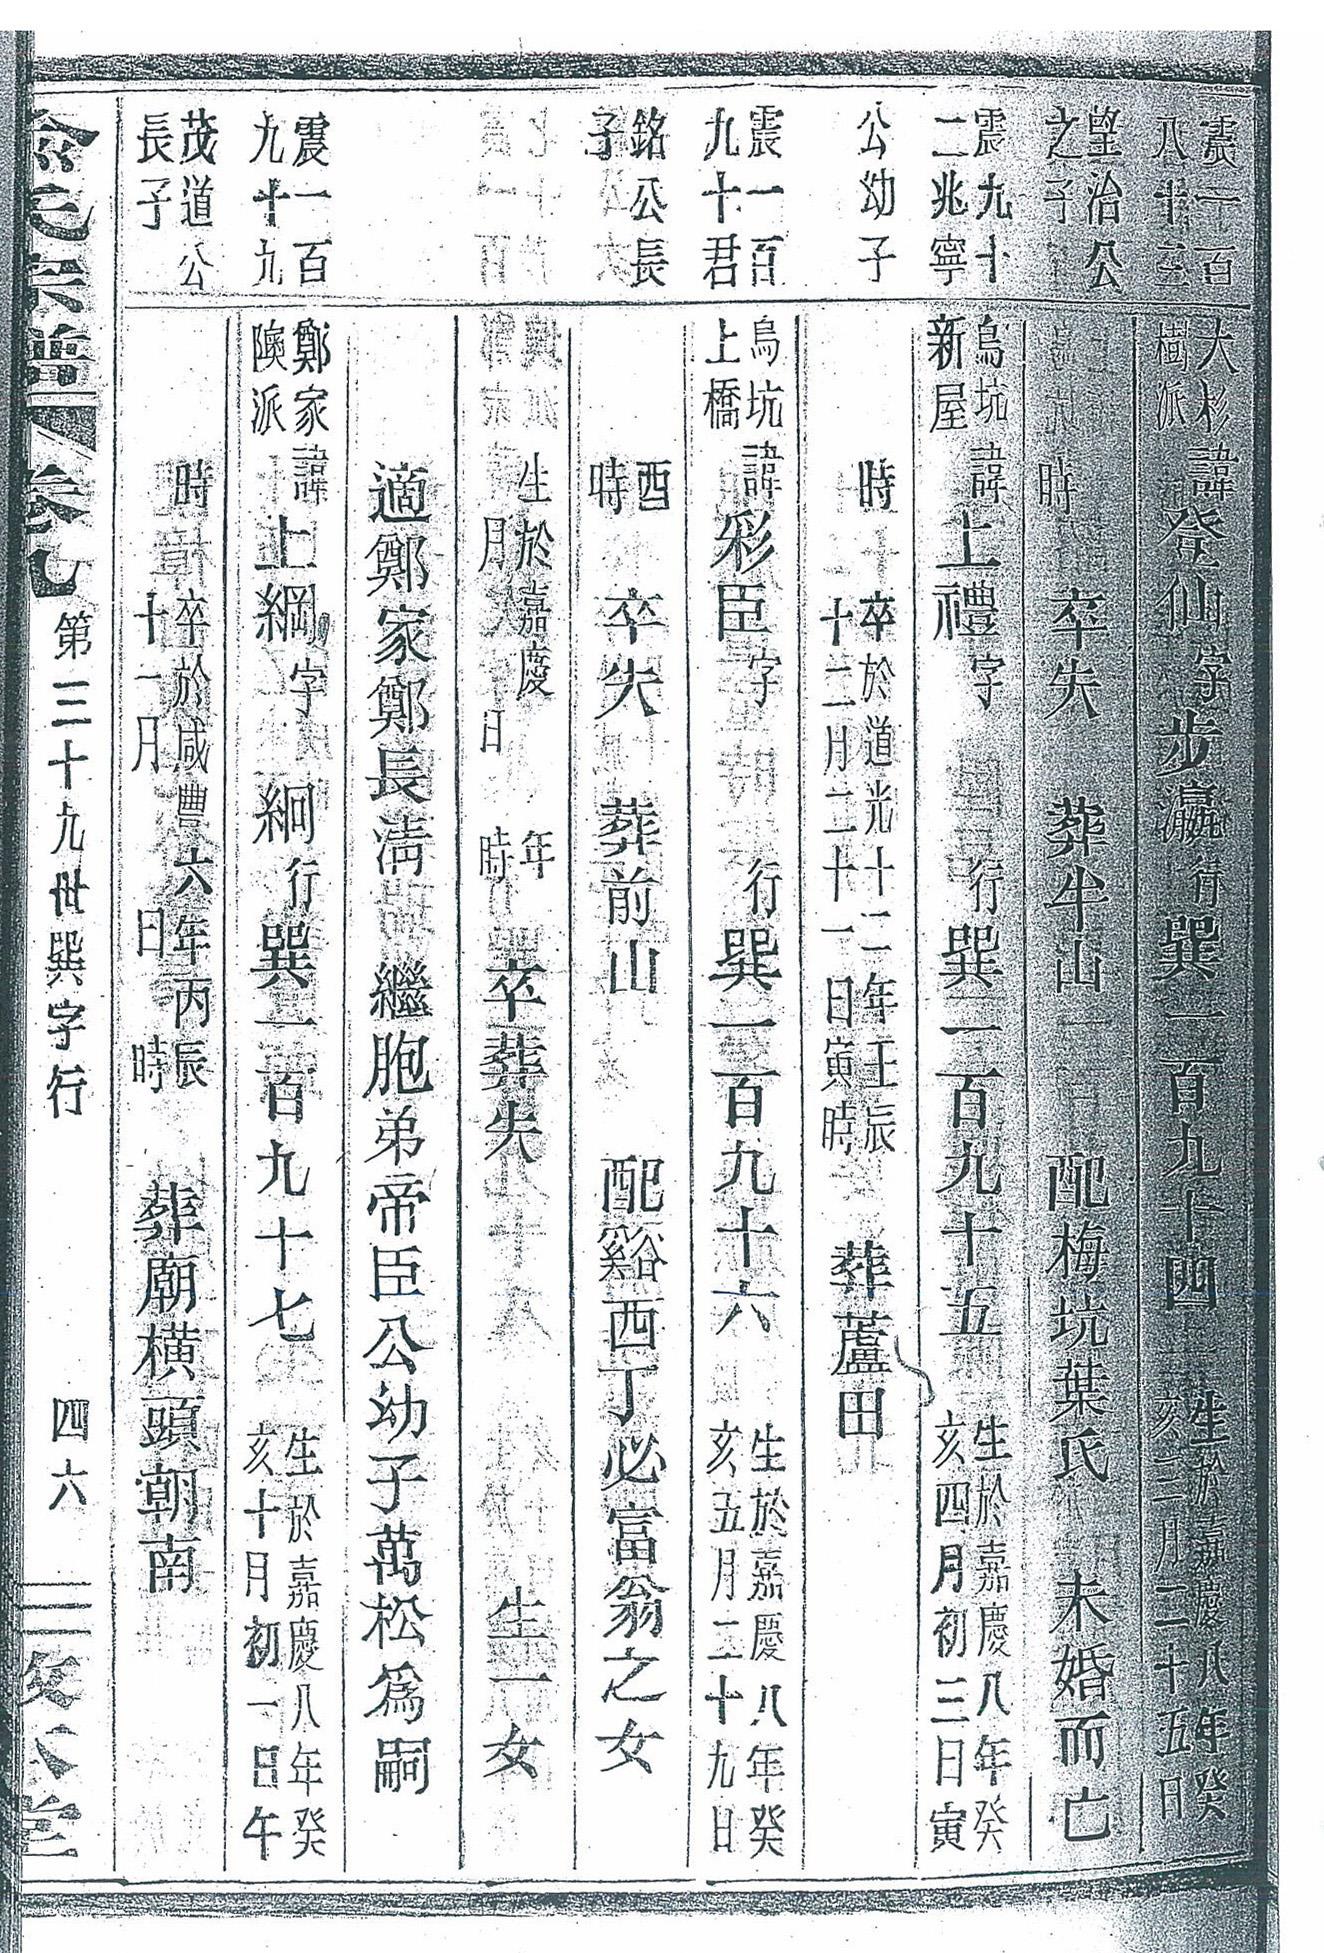 震一百
八十三
望治公
之子
震九十
二兆寧
公幼子
震一百
九十君
銘公長
子
震一百
九十九
茂道公
長子
大杉
樹派
諱登仙字步瀛行巽一百九十四
生於嘉慶八年癸
亥三月二十五日
時 卒失 葬牛山 配梅坑葉氏 未婚而亡
烏坑
新屋
諱上禮字 行巽一百九十五
生於嘉慶八年癸
亥四月初三日寅
時
卒於道光十二年壬辰
十二月二十一日寅時
葬蘆田
烏坑
上橋
諱彩臣字 行巽一百九十六
生於嘉慶八年癸
亥五月二十九日
酉
時
卒失 葬前山 配谿西丁必富翁之女
生於嘉慶 年
月 日 時
卒葬失 生一女
適鄭家鄭長清 繼胞弟帝臣公幼子萬松為嗣
鄭家
隩派
諱上綱字絅行巽一百九十七
生於嘉慶八年癸
亥十月初一日午
時
卒於咸豐六年丙辰
十一月 日 時
葬廟橫頭朝南
氏宗譜 卷九 第三十九世巽字行 四六